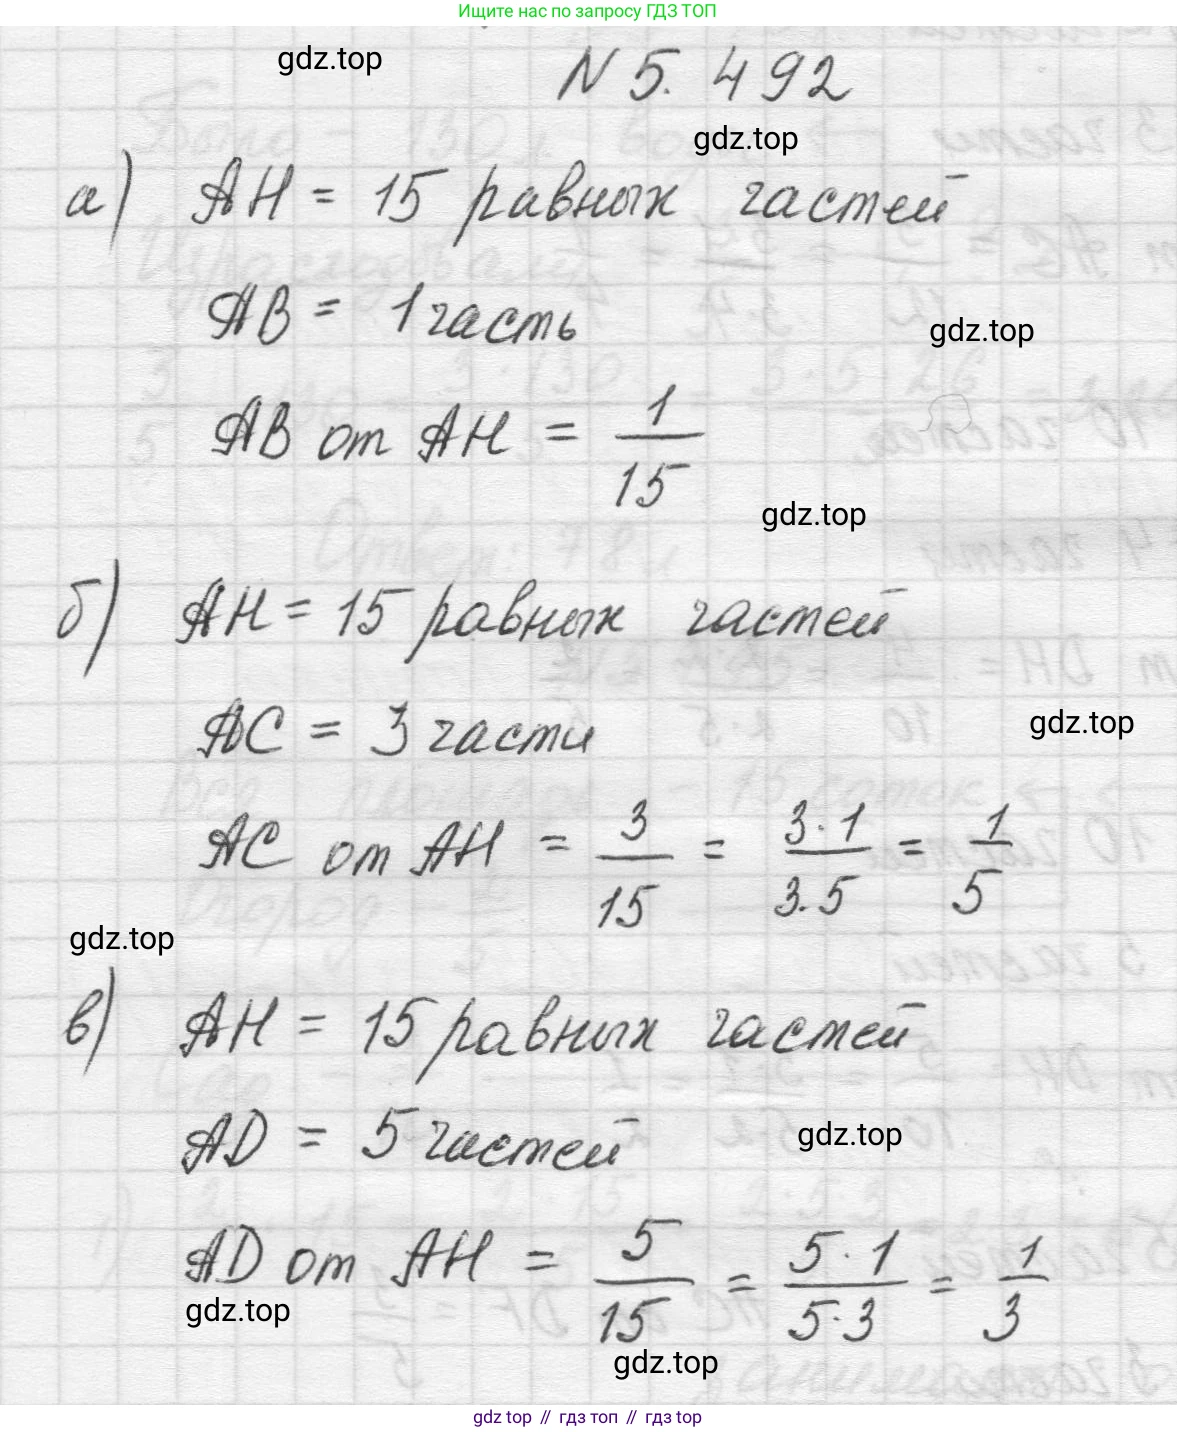 Ищите нас по запросу ГДЗ ТОП
gdz.top
N 5. 492
gdz.top
а) AH = 15 равных частей
AB = 1 часть
gdz.top
AB от AH = 1/15
gdz.top
б) AH = 15 равных частей
AC = 3 части
gdz.top
AC от AH = 3/15 = 3·1/3·5 = 1/5
gdz.top
в) AH = 15 равных частей
AD = 5 частей
gdz.top
AD от AH = 5/15 = 5·1/5·3 = 1/3
gdz.top
gdz.top
gdz top // гдз топ // gdz top